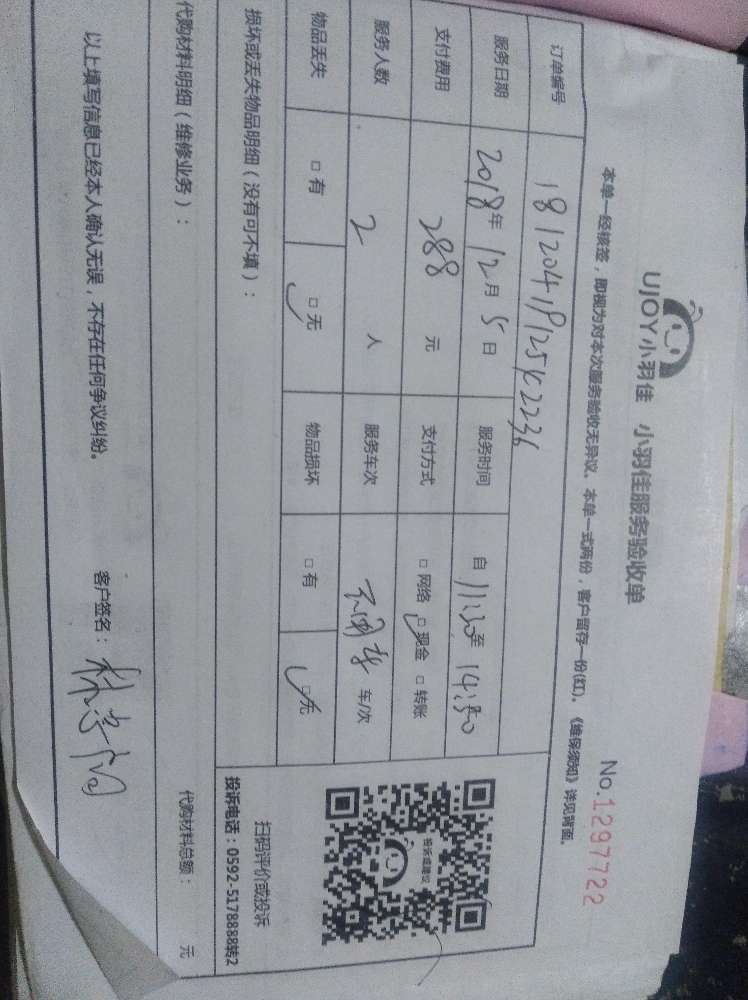 UJOY小羽佳 小羽佳服务验收单
No.1297722
本单一经核签，即视为对本次服务验收无异议、本单一式两份，客户留存一份(红)。《维保须知》详见背面。
订单编号
服务日期 2018年 12月 5日 服务时间 自 11:30至 14:30
支付费用 288 元 支付方式 □ 网络 □ 现金 □ 转账
服务人数 2 人 服务车次 车/次
物品丢失 □ 有 □ 无 物品损坏 □ 有 □ 无
投诉或建议
扫码评价或投诉
投诉电话：0592-5178888转2
损坏或丢失物品明细（没有可不填）：
代购材料明细（维修业务）：
代购材料总额： 元
以上填写信息已经本人确认无误，不存在任何争议纠纷。 客户签名：